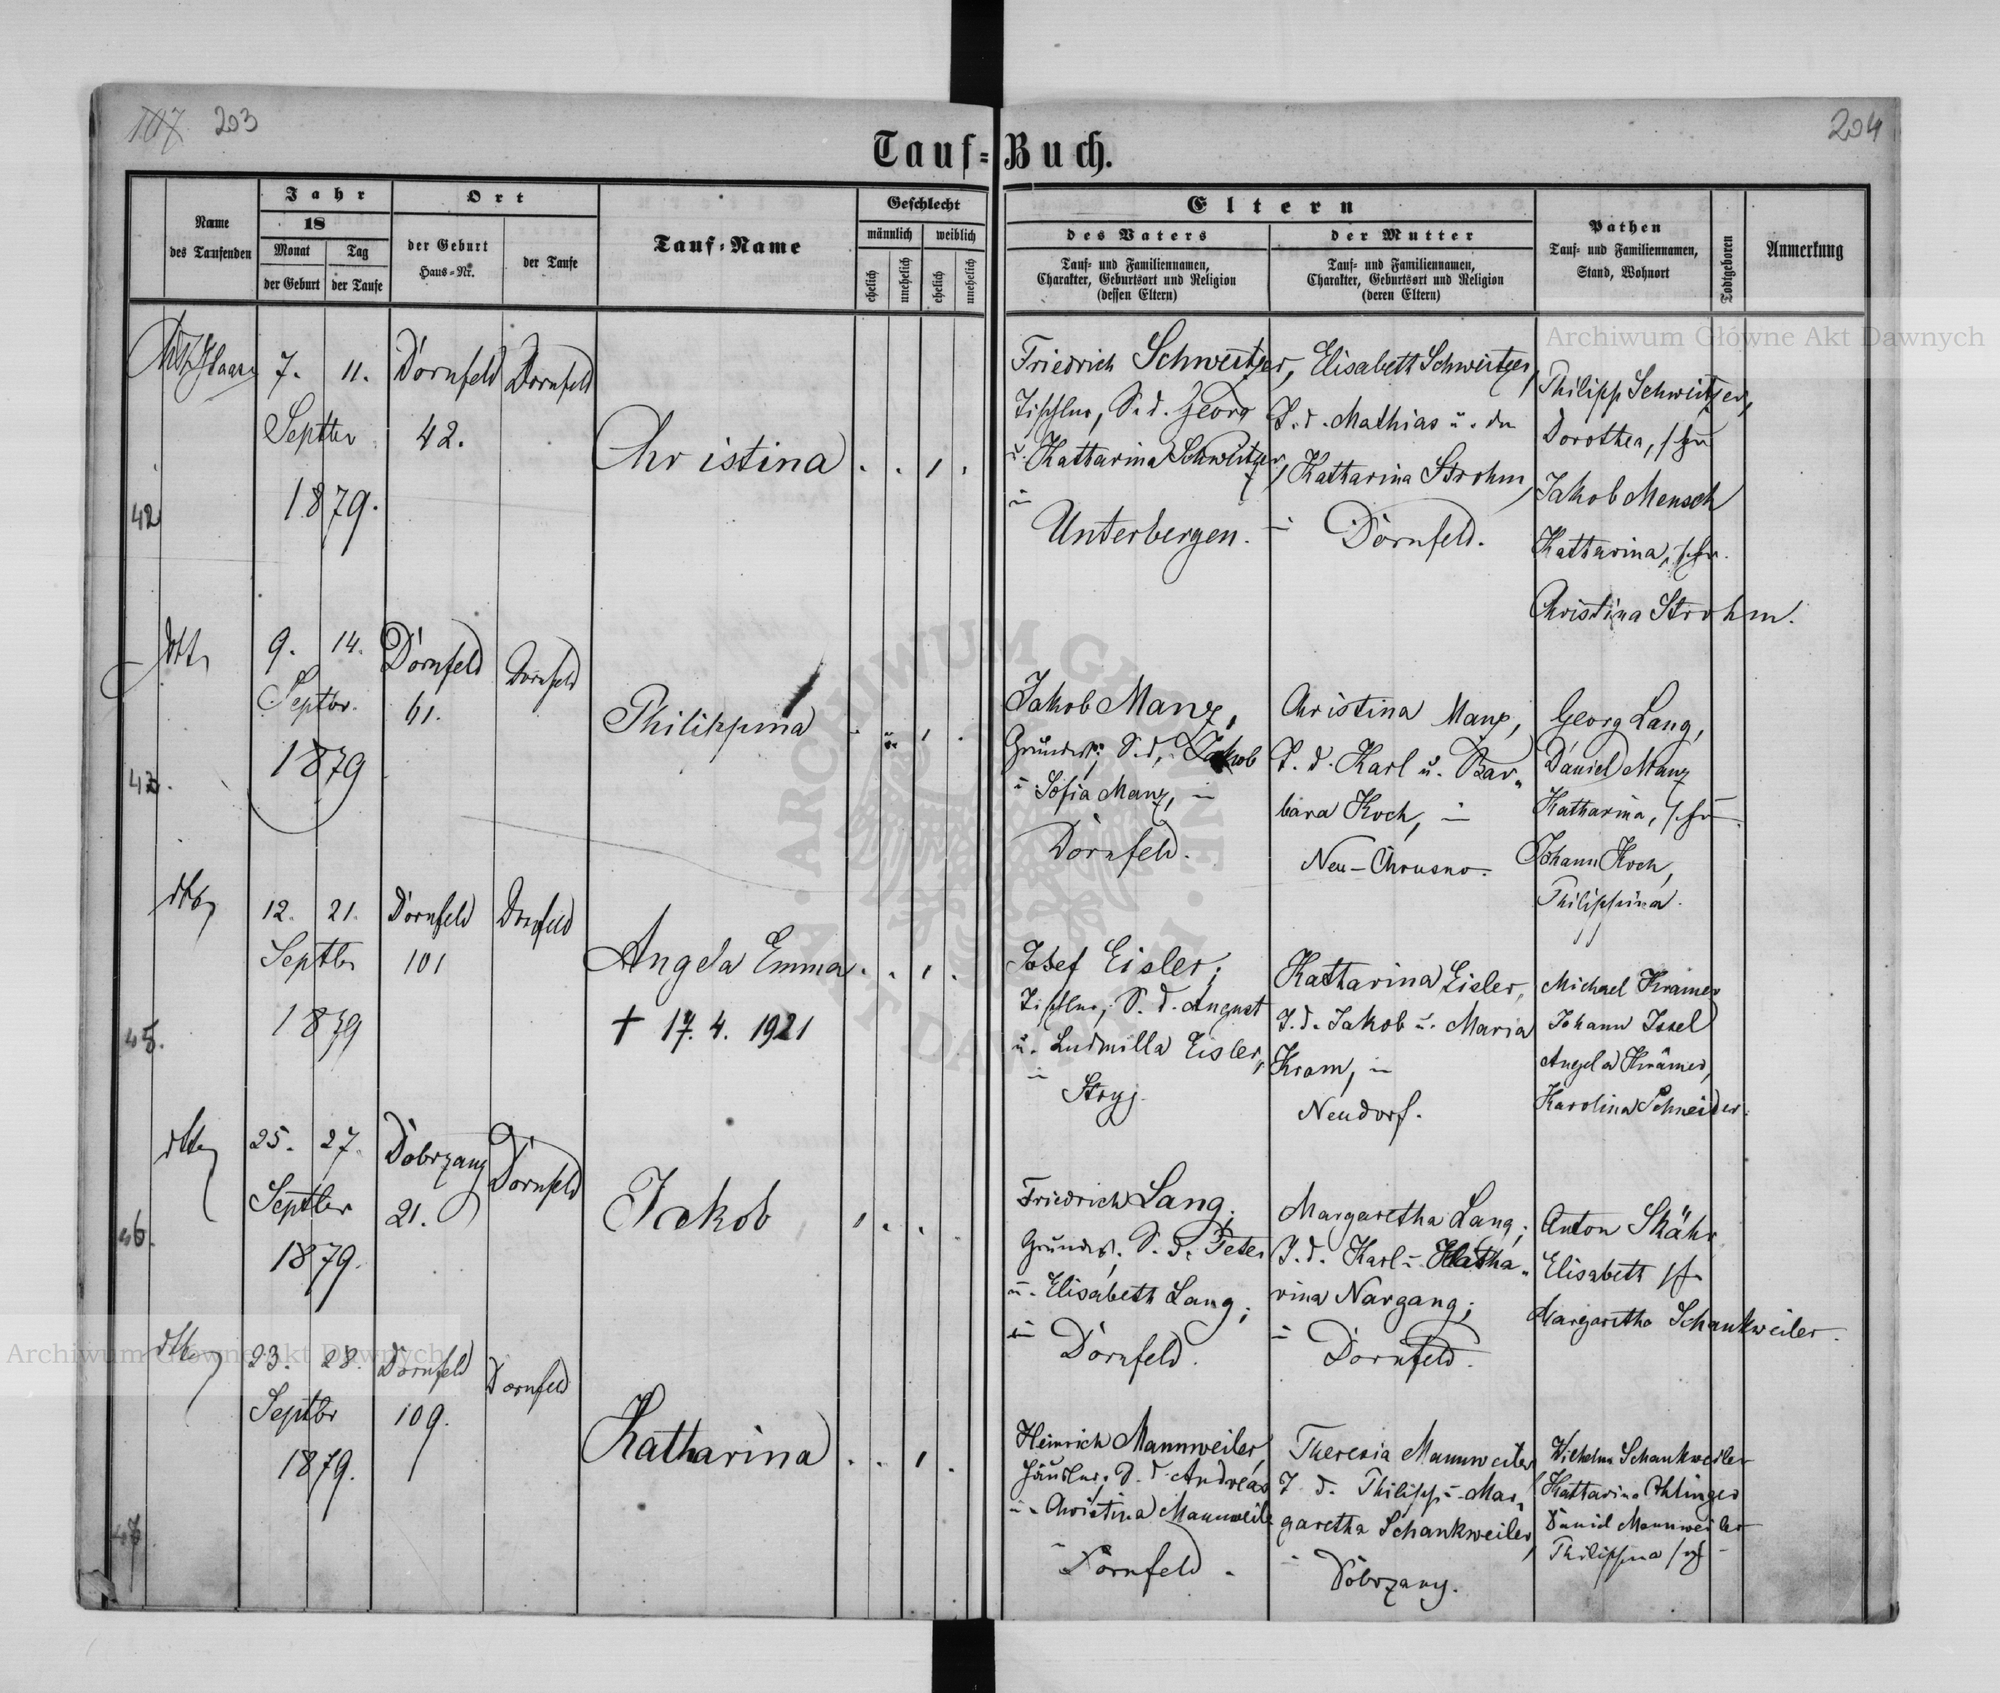 107 203
204
Tauf-Buch.
Name des Taufenden
Jahr
18
Monat der Geburt
Tag der Taufe
Ort
der Geburt
Haus-Nr.
der Taufe
Tauf-Name
Geschlecht
männlich
weiblich
ehelich
unehelich
ehelich
unehelich
Eltern
des Vaters
Tauf- und Familiennamen,
Charakter, Geburtsort und Religion
(dessen Eltern)
der Mutter
Tauf- und Familiennamen,
Charakter, Geburtsort und Religion
(deren Eltern)
Pathen
Tauf- und Familiennamen,
Stand, Wohnort
Todtgeboren
Anmerkung
42
7. 11.
Septbr
1879.
Dornfeld
42.
Dornfeld
Christina
Friedrich Schweitzer,
Tischler, S. d. Georg
u. Katharina Schweitzer,
in
Unterbergen.
Elisabeth Schweitzer,
T. d. Mathias u. der
Katharina Strohm,
in Dornfeld.
Philipp Schweitzer,
Dorothea,
Jakob Mensch
Katharina,
Christina Strohm.
43.
dtto
9. 14.
Septbr.
1879
Dornfeld
61.
Dornfeld
Philippina
Jakob Manz,
Grundw., S. d. Jakob
u. Sofia Manz, in
Dornfeld.
Christina Manz,
T. d. Karl u. Bar-
bara Koch, in
Neu-Chrusno.
Georg Lang,
Daniel Manz
Katharina,
Johann Koch,
Philippina.
45.
dtto
12. 21.
Septbr
1879
Dornfeld
101
Dornfeld
Angela Emma
† 17. 4. 1921
Josef Eisler,
Tischler, S. d. August
u. Ludmilla Eisler,
in
Stryj.
Katharina Eisler,
T. d. Jakob u. Maria
Kram, in
Neudorf.
Michael Kramer
Johann Issel
Angela Krämer,
Karolina Schneider.
46.
dtto
25. 27.
Septbr
1879.
Dobrzany
21.
Dornfeld
Jakob
Friedrich Lang;
Grundw., S. d. Peter
u. Elisabeth Lang;
in Dornfeld.
Margaretha Lang;
T. d. Karl u. Katha-
rina Nargang;
in Dornfeld.
Anton
Elisabeth
Margaretha Schankweiler.
47
dtto
23. 28.
Septbr
1879.
Dornfeld
109.
Dornfeld
Katharina
Heinrich Mannweiler,
Häusler, S. d. Andreas
u. Christina Mannweiler
in Dornfeld.
Theresia Mannweiler
T. d. Philipp u. Mar-
garetha Schankweiler,
in Dobrzany.
Wilhelm Schankweiler
Katharina
Daniel Mannweiler
Philippina
Archiwum Główne Akt Dawnych
Archiwum Główne Akt Dawnych
ARCHIWUM GŁÓWNE AKT DAWNYCH